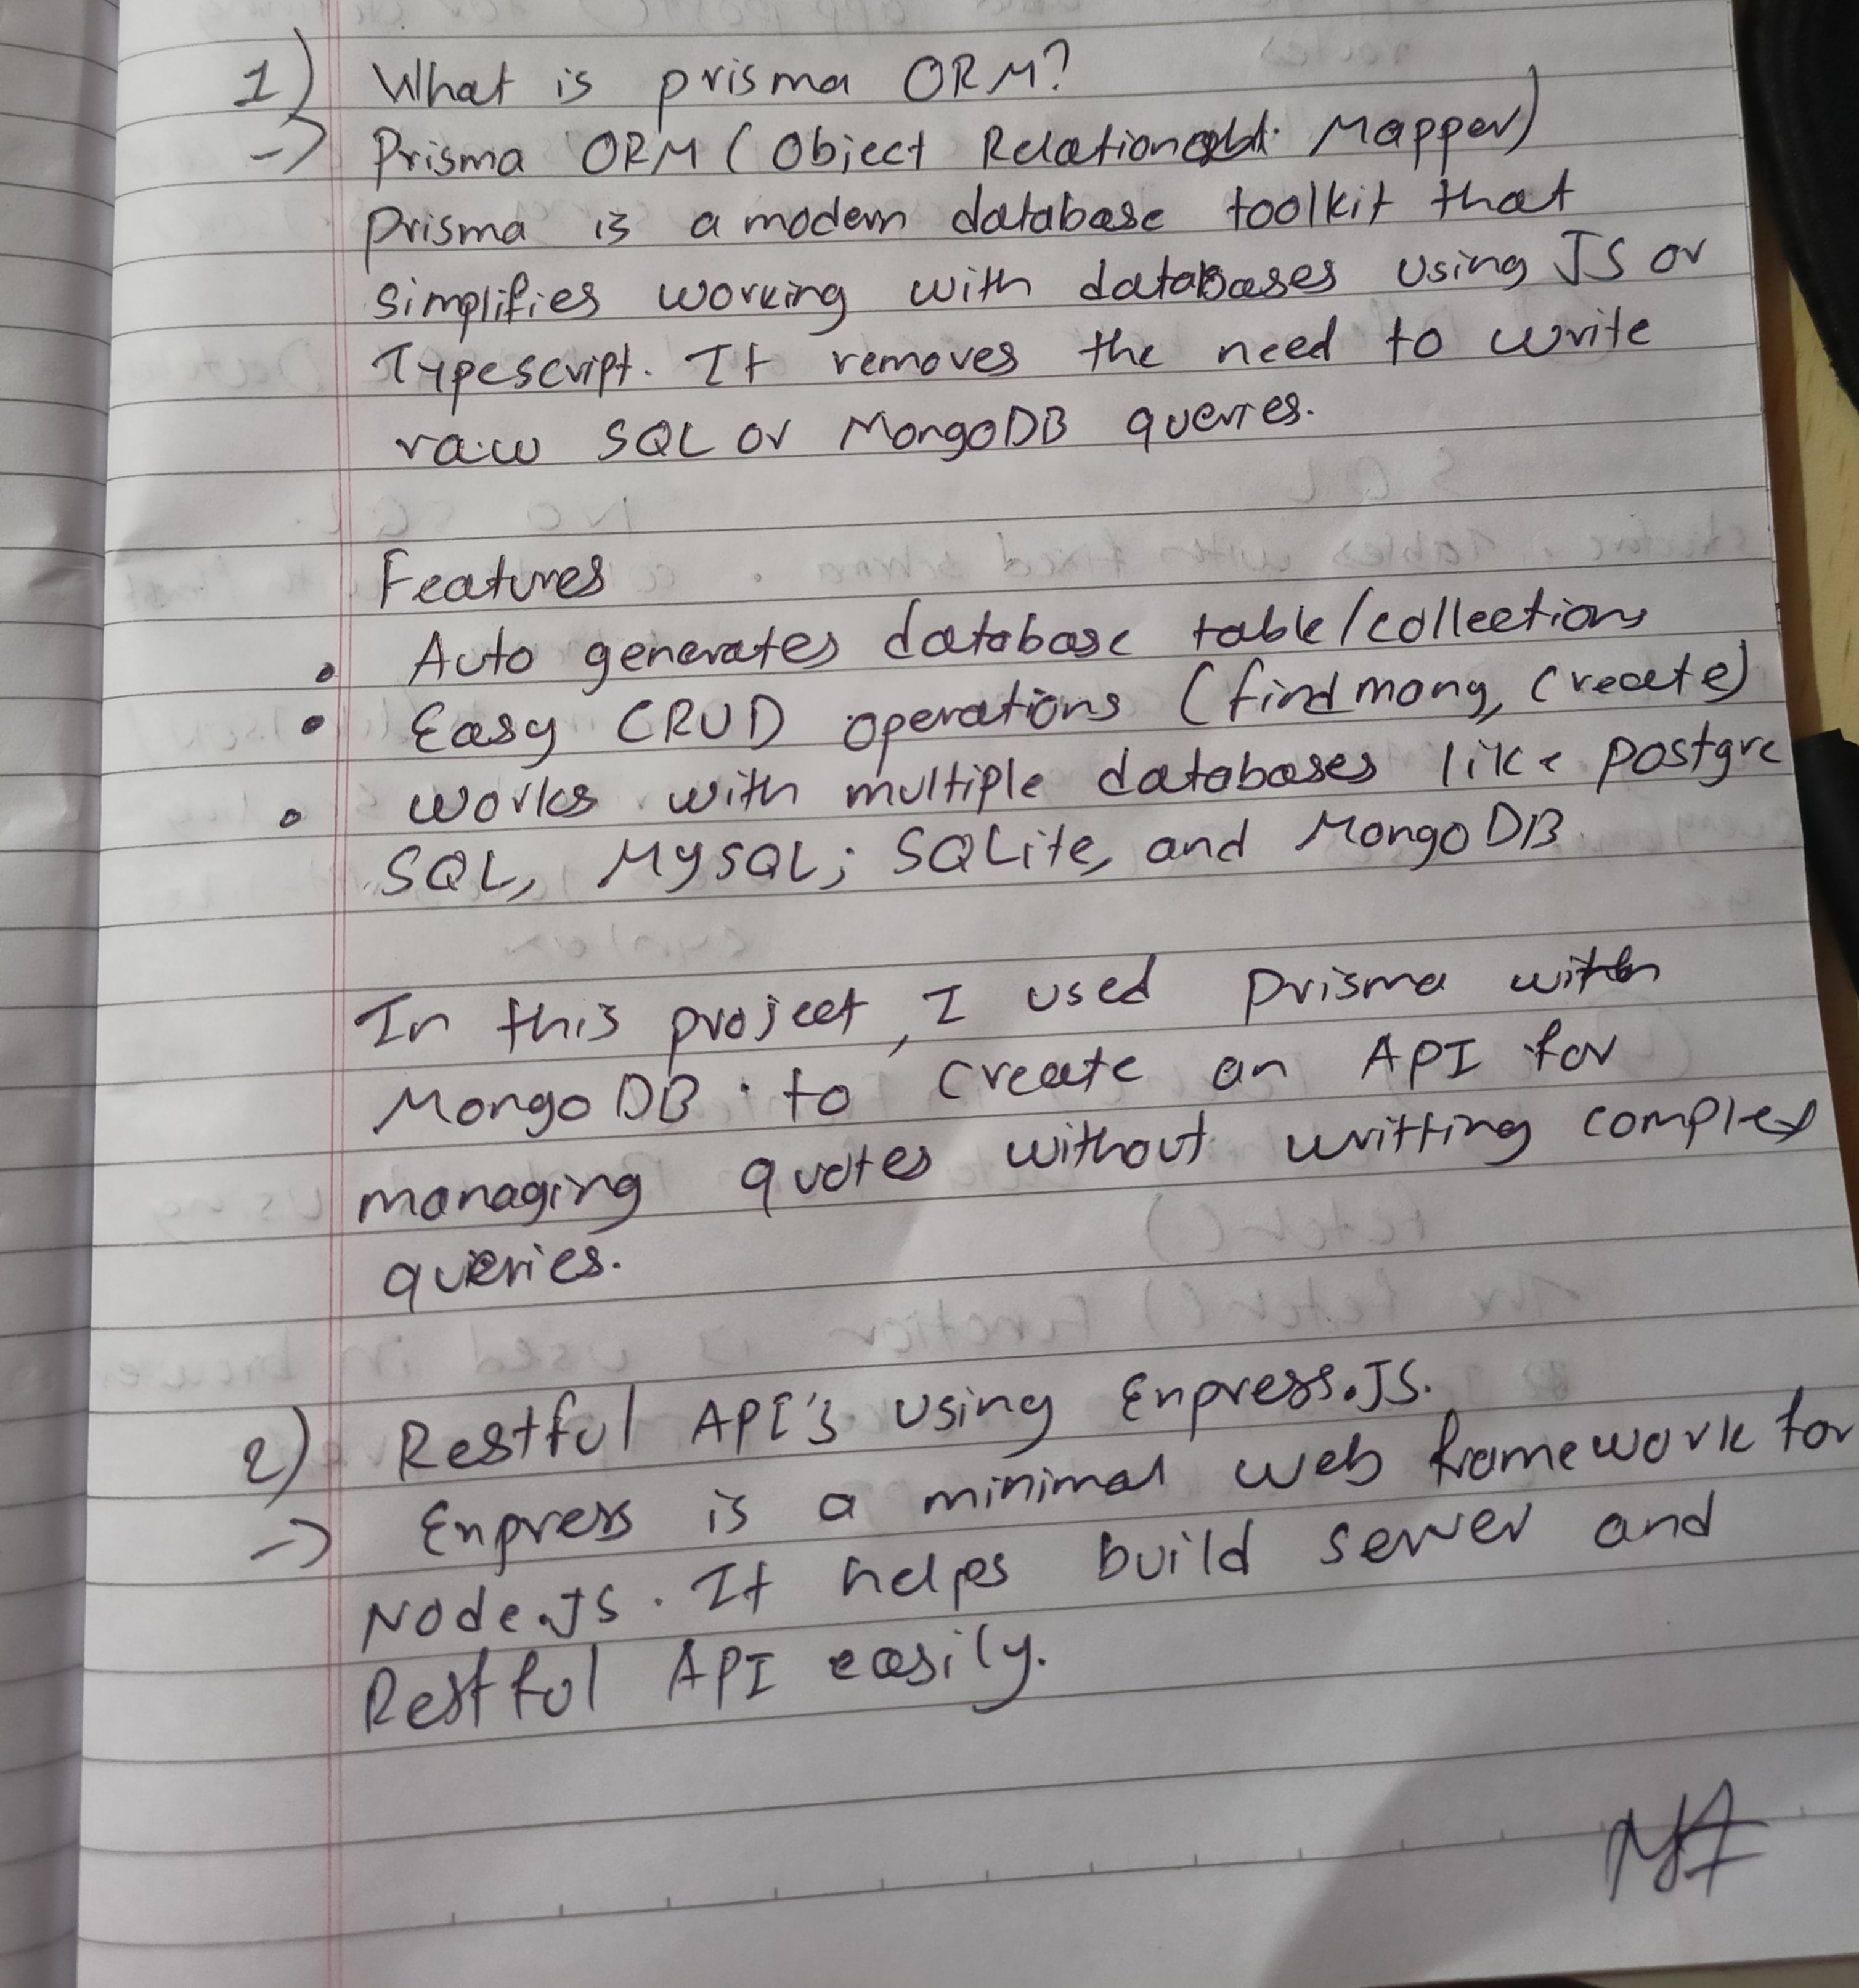 1) What is prisma ORM?
-> Prisma ORM ( Object Relational Mapper)
Prisma is a modern database toolkit that
simplifies working with databases using JS or
Typescript. It removes the need to write
raw SQL or MongoDB queries.
Features
• Auto generates database table/collections
• Easy CRUD operations (findmany, create)
• works with multiple databases like postgre
SQL, MySQL; SQLite, and MongoDB
In this project, I used prisma with
MongoDB to create an API for
managing quotes without writting complex
queries.
2) Restful API's using Express.JS.
-> Express is a minimal web framework for
Node.JS. It helps build server and
Restful API easily.